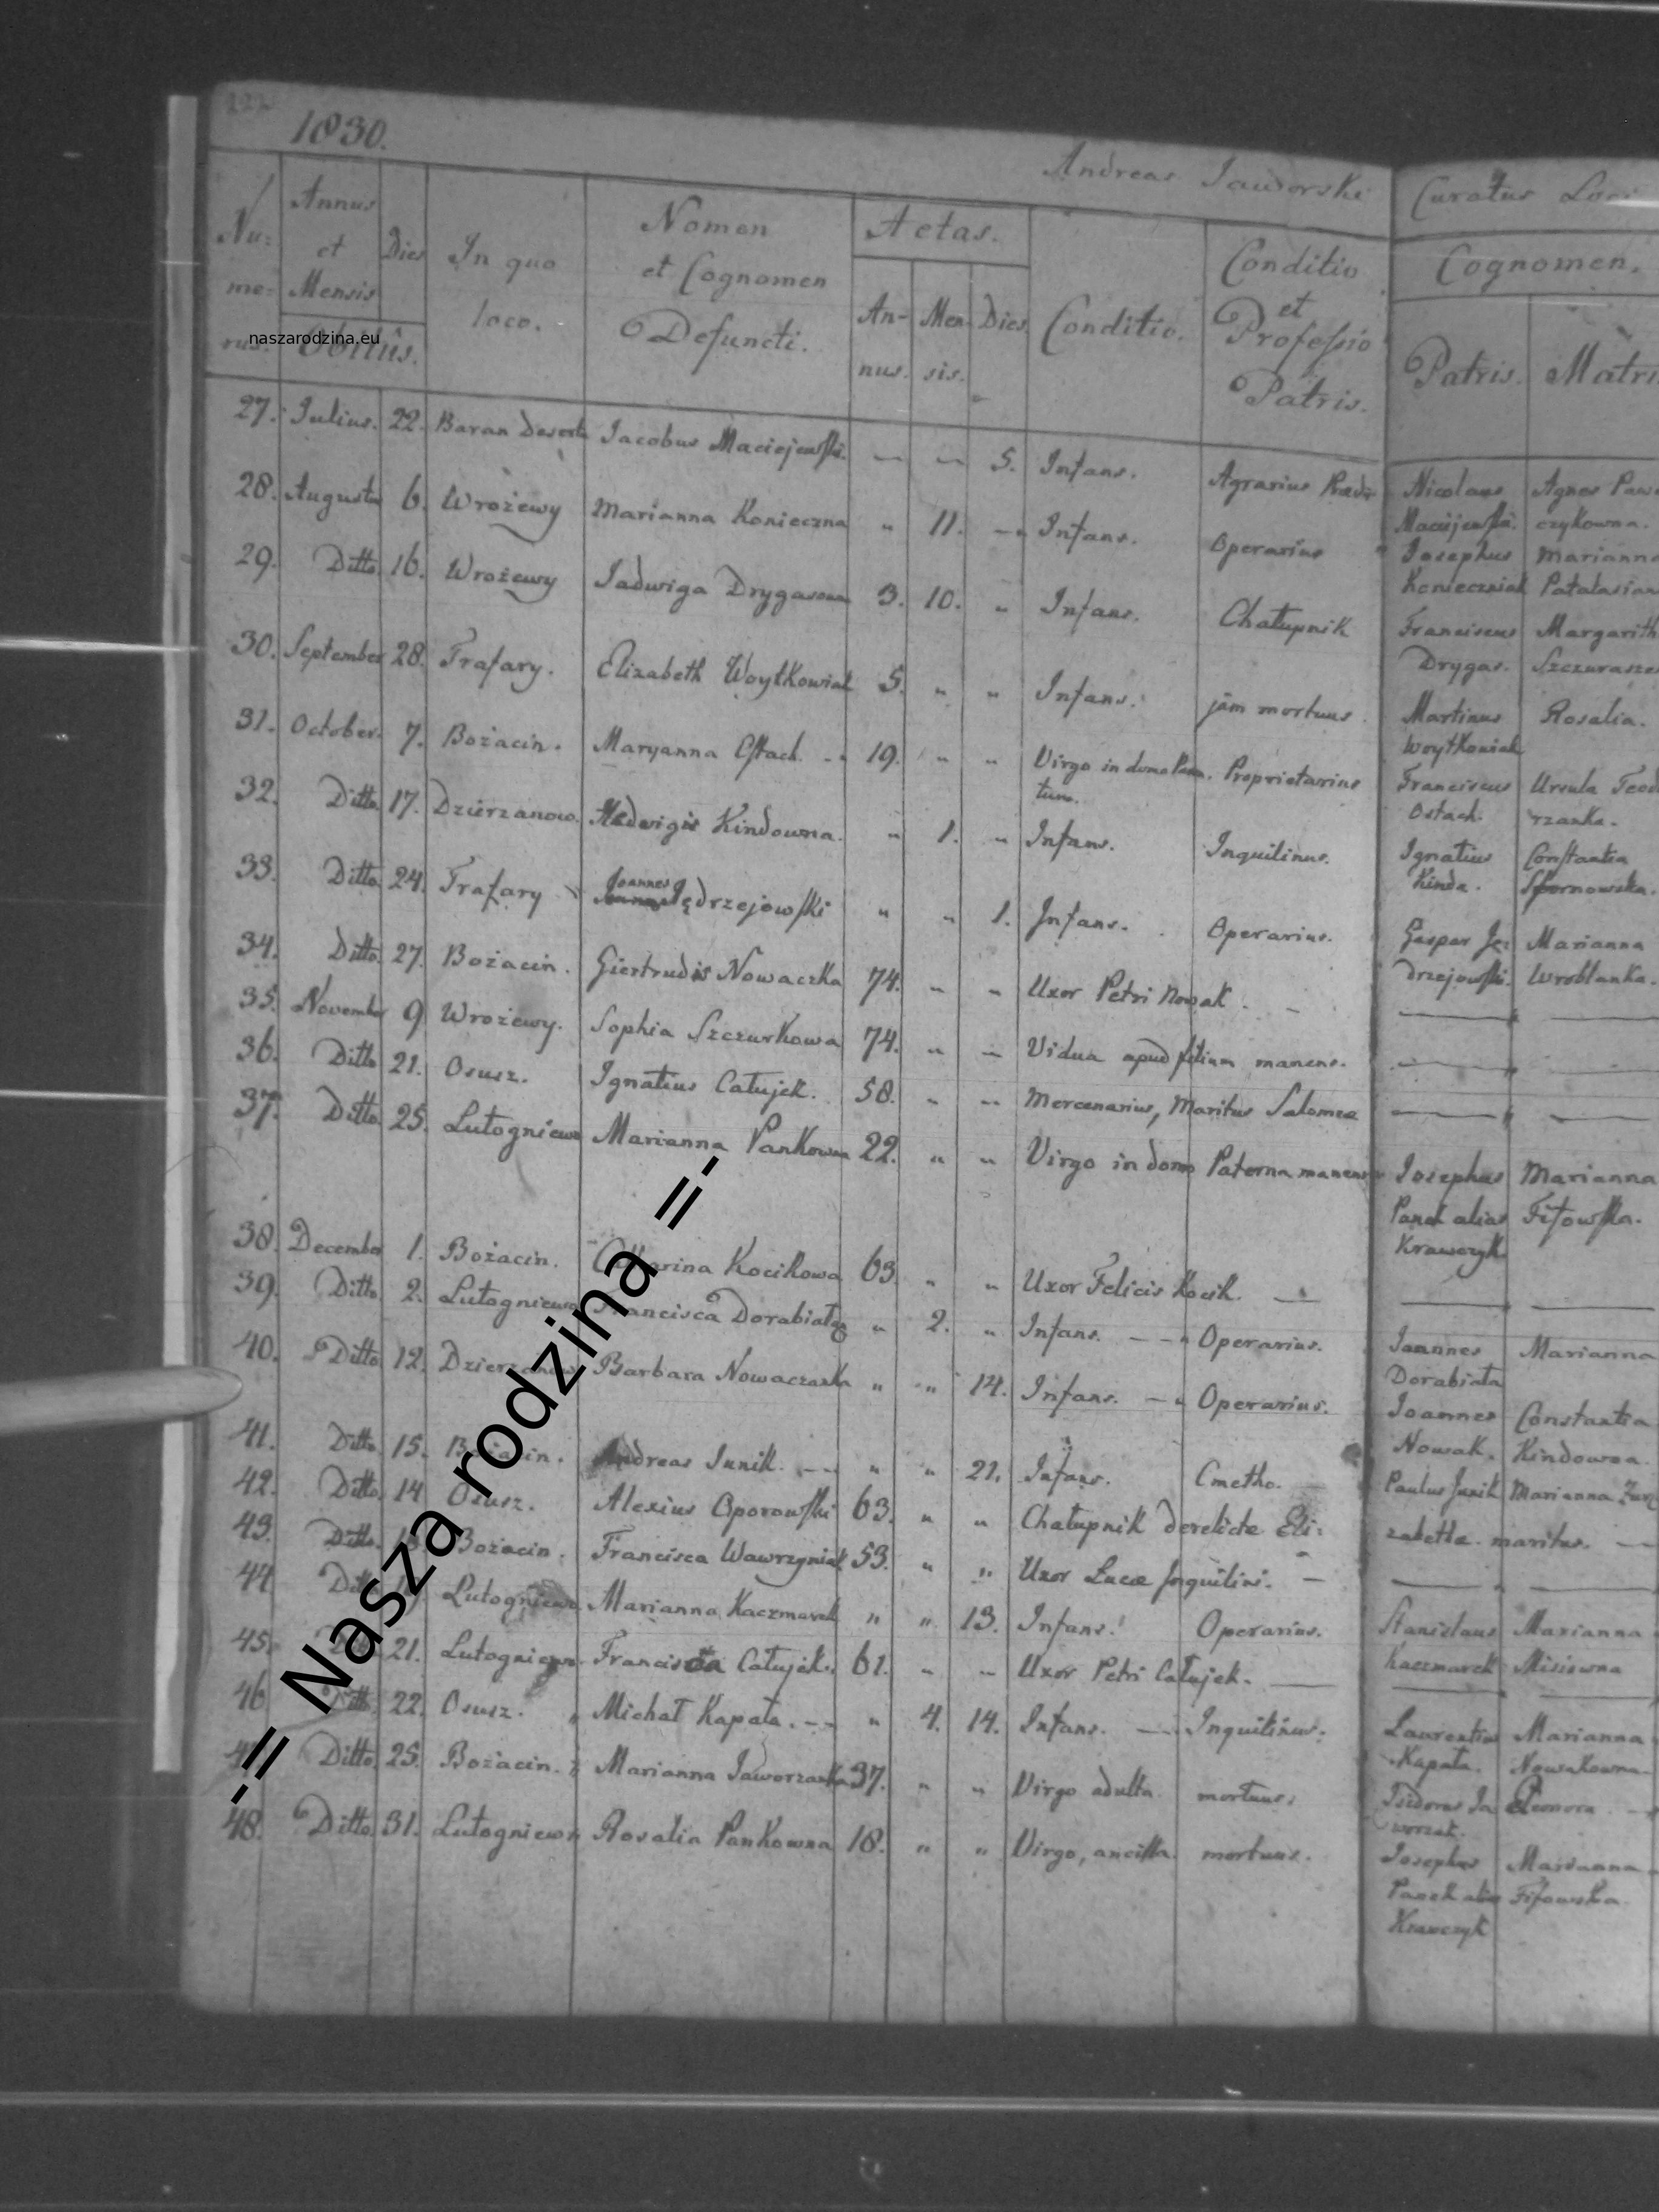 1830.
Andreas Jaworski Curatus Loci
Nu- me- rus. Annus et Mensis Dies Obitûs. In quo loco. Nomen et Cognomen Defuncti. Aetas. An- nus. Men- sis. Dies. Conditio. Conditio et Professio Patris. Cognomen. Patris. Matris
27. Julius. 22. Baran Deserta Jacobus Maciejewski. — — 5. Infans. Agrarius Nicolaus Agnes Paw
Maciejewski. czykowna.
28. Augustus 6. Wrożewy Marianna Konieczna " 11. — Infans. Operarius Josephus Marianna
Konieczniak Patalasian
29. Ditto 16. Wrożewy Jadwiga Drygasowna 3. 10. " Infans. Chałupnik Franciscus Margarith
Drygas. Szczurasze
30. September 28. Trafary. Elizabeth Woytkowiak 5. " " Infans. jam mortuus. Martinus Rosalia.
Woytkowiak
31. October. 7. Bożacin. Maryanna Ostach. 19. " " Virgo in domo Proprietarius Franciscus Ursula Teod
Ostach. rzanka.
32. Ditto 17. Dzierzanow. Hedwigis Kindowna. " 1. " Infans. Inquilinus. Ignatius Constantia
Kinda. Sfornowska.
33. Ditto 24. Trafary Joannes Jędrzejowski " " 1. Infans. Operarius. Gaspar Ję- Marianna
drzejowski. Wroblanka.
34. Ditto 27. Bożacin. Giertrudis Nowaczka 74. " " Uxor Petri Nowak.
35. November 9 Wrożewy. Sophia Szczurkowa 74. " — Vidua apud filium manens.
36. Ditto 21. Osusz. Ignatius Całujek. 58. " " Mercenarius, Maritus Salomeæ
37. Ditto 25. Lutogniewo Marianna Pankowna 22. " " Virgo in domo Paterna manens Josephus Marianna
Panek alias Fifowska.
Krawczyk
38. December 1. Bożacin. Catharina Kocikowa 63. " " Uxor Felicis Kocik. —
39. Ditto 2. Lutogniewo Francisca Dorabiała " 2. " Infans. — Operarius. Joannes Marianna
Dorabiała
40. Ditto 12. Dzierzanow Barbara Nowaczanka " " 14. Infans. — Operarius. Joannes Constantia
Nowak. Kindowna.
41. Ditto 15. Bożacin. Andreas Junik. — " " 21. Infans. Cmetho. Paulus Junik Marianna
42. Ditto 14 Osusz. Alexius Oporowski 63. " " Chałupnik derelictæ Eli- zabethæ maritus. —
43. Ditto Bożacin. Francisca Wawrzyniak 53. " " Uxor Lucæ Inquilini. —
44 Ditto Lutogniewo Marianna Kaczmarek " " 13. Infans. Operarius. Stanislaus Marianna
Kaczmarek Misiowna
45. 21. Lutogniewo Francisca Całujek. 61. " " Uxor Petri Całujek. —
46 Ditto 22. Osusz. Michał Kapała. — " 4. 14. Infans. — Inquilinus. Laurentius Marianna
Kapała. Nowakowna.
47 Ditto 25. Bożacin. Marianna Jaworzanka 37. " " Virgo adulta. mortuus. Isidorus Ja Eleonora. —
worzak.
48. Ditto 31. Lutogniewo Rosalia Pankowna 18. " " Virgo, ancilla. mortuus. Josephus Marianna
Panek alias Fifowska
Krawczyk
naszarodzina.eu
-= Nasza rodzina =-